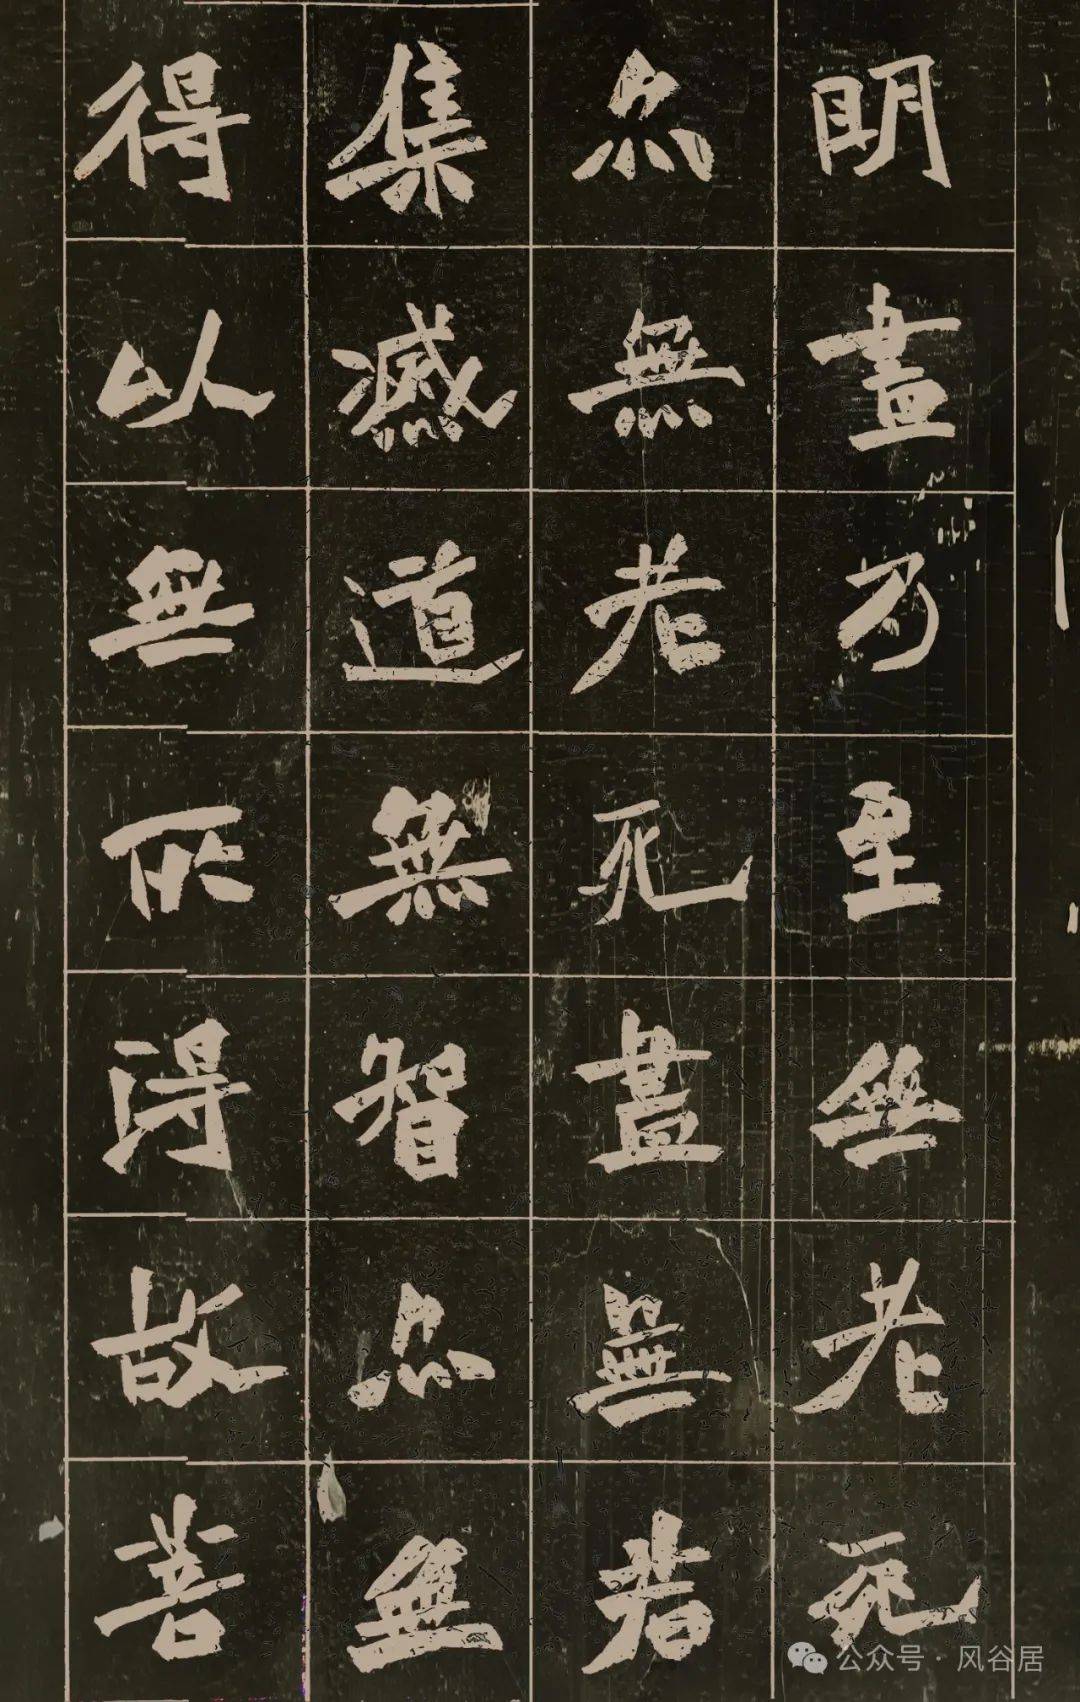 明盡乃至無老死
亦無老死盡無苦
集滅道無智亦無
得以無所得故菩
公众号 · 风谷居